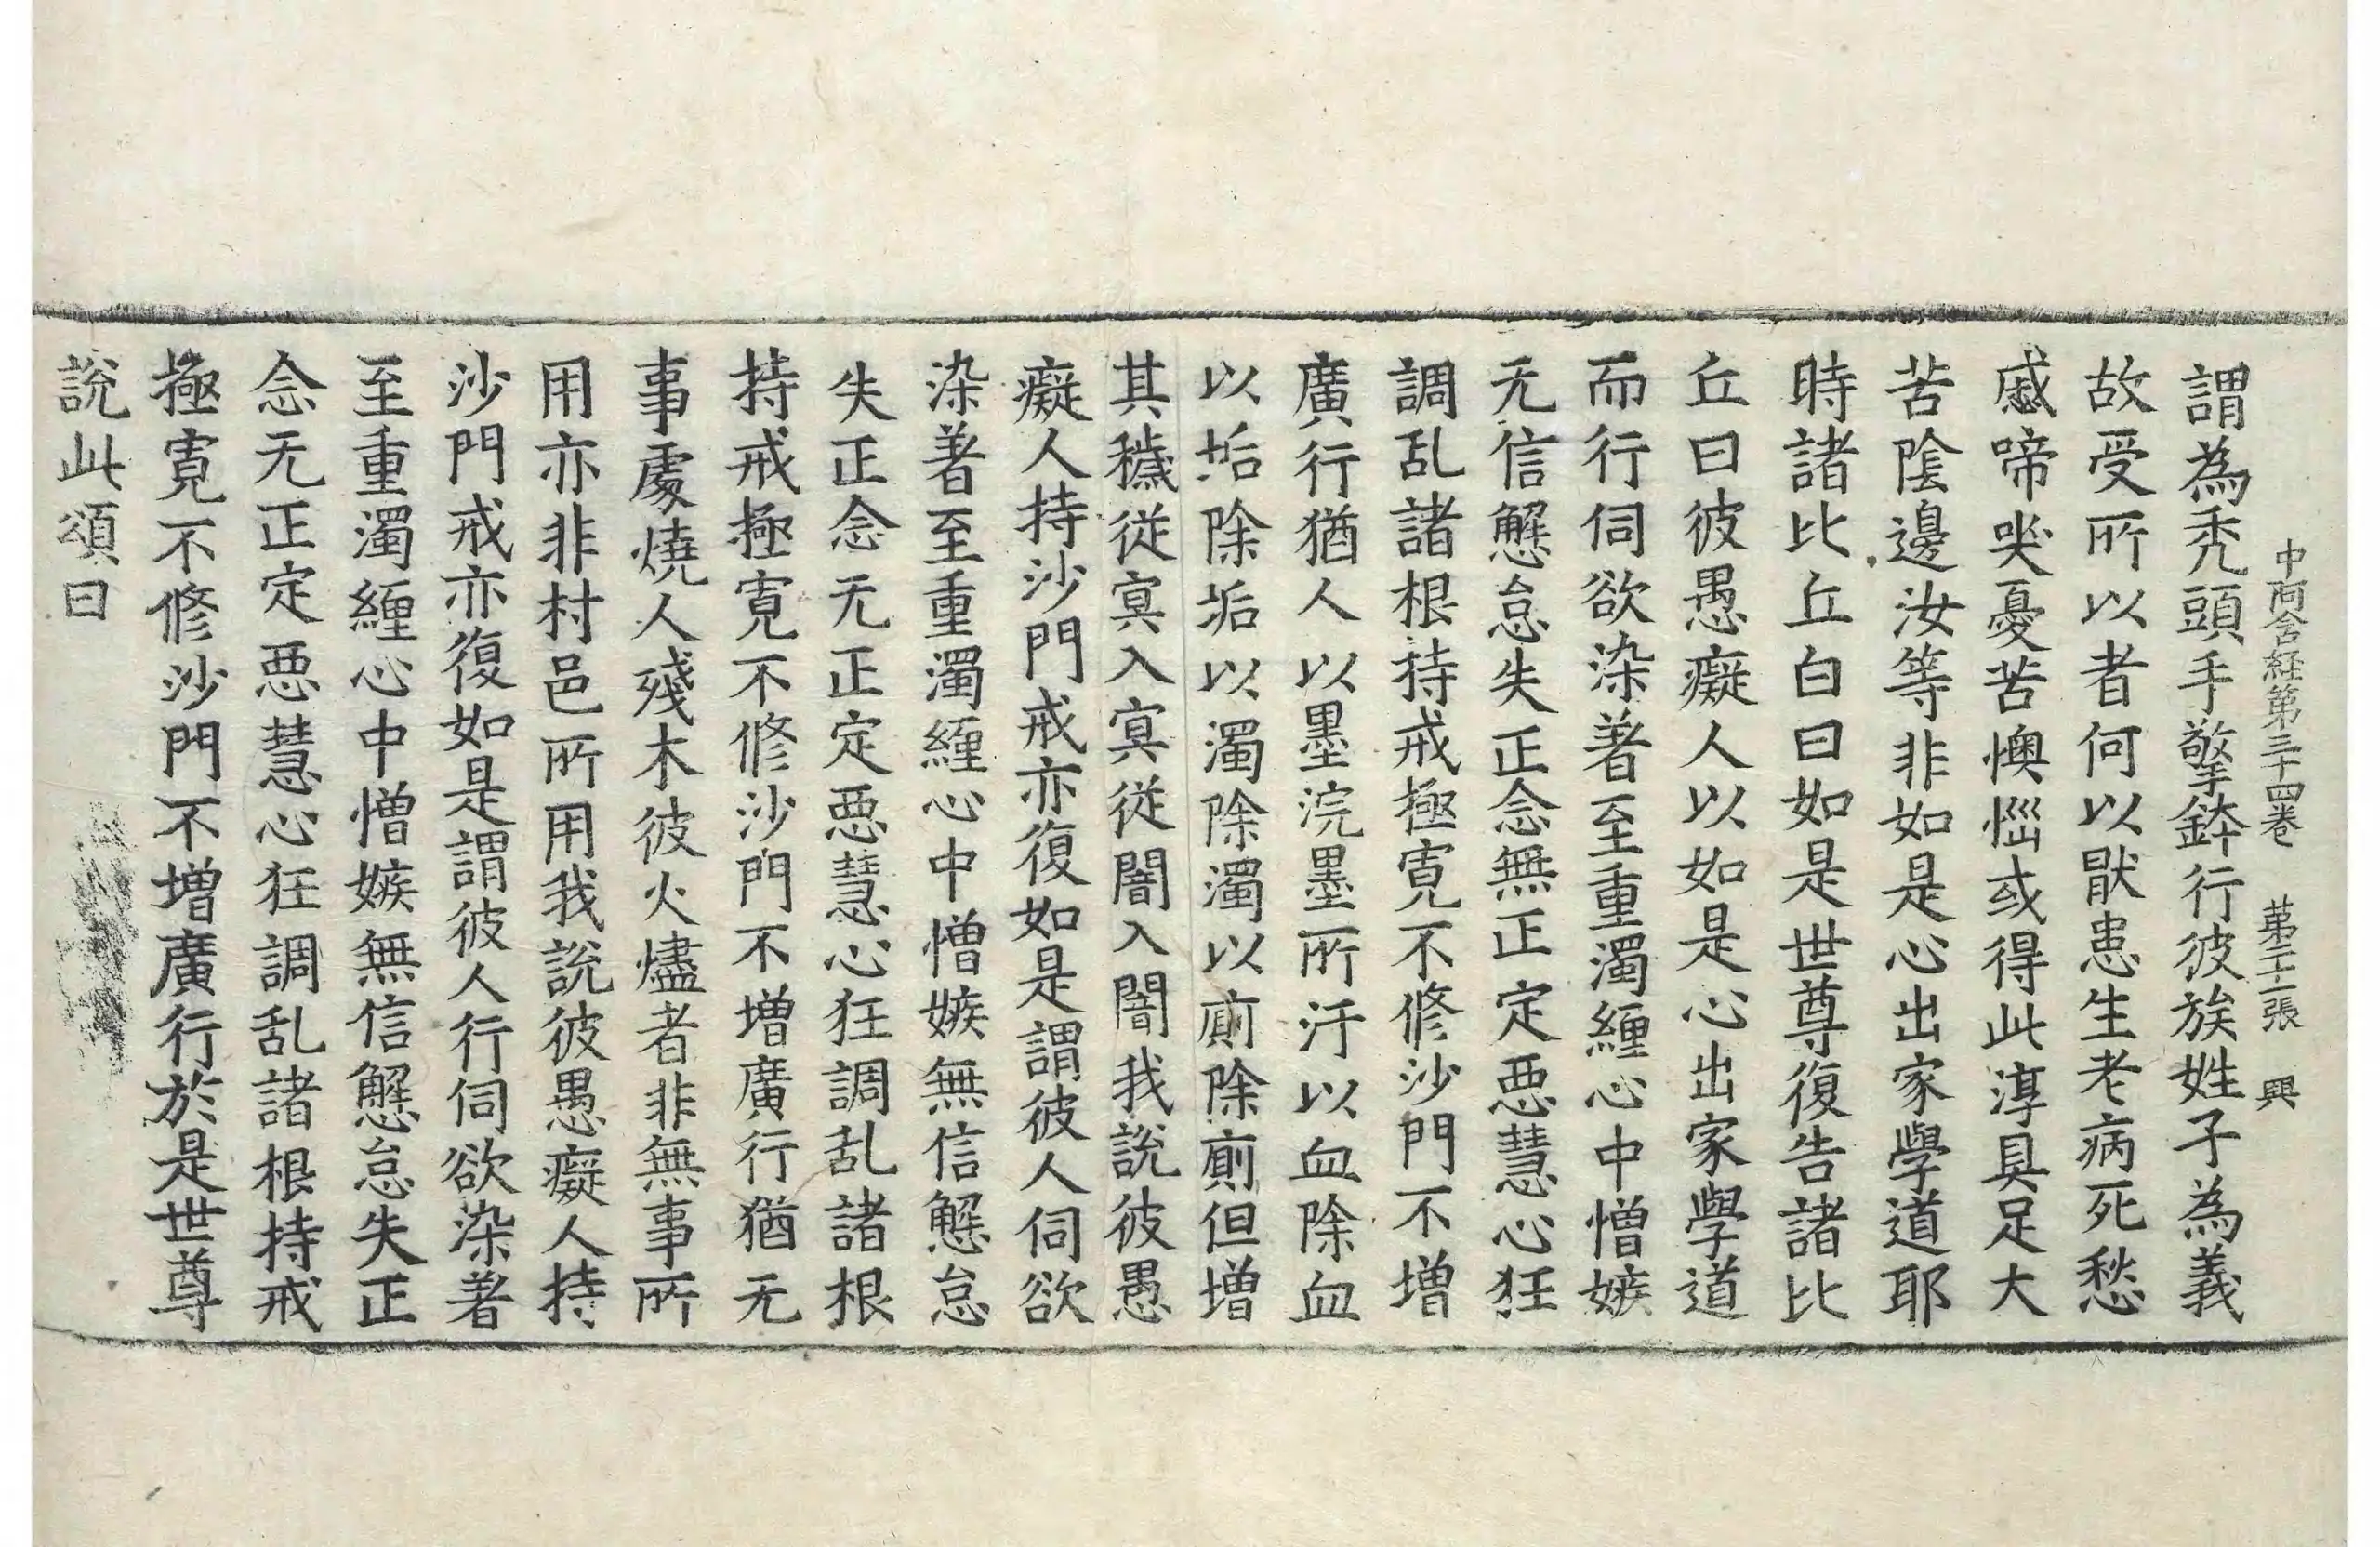 中阿含経第三十四巻 第二十二張 興
謂為禿頭手擎鉢行彼族姓子為義
故受所以者何以猒患生老病死愁
慼啼哭憂苦懊惱或得此淳具足大
苦陰邊汝等非如是心出家學道耶
時諸比丘白曰如是世尊復告諸比
丘曰彼愚癡人以如是心出家學道
而行伺欲染著至重濁纏心中憎嫉
无信懈怠失正念無正定惡慧心狂
調乱諸根持戒極寬不修沙門不增
廣行猶人以墨浣墨所汙以血除血
以垢除垢以濁除濁以廁除廁但增
其穢從冥入冥從闇入闇我說彼愚
癡人持沙門戒亦復如是謂彼人伺欲
染著至重濁纏心中憎嫉無信懈怠
失正念无正定惡慧心狂調乱諸根
持戒極寬不修沙門不增廣行猶无
事處燒人殘木彼火燼者非無事所
用亦非村邑所用我說彼愚癡人持
沙門戒亦復如是謂彼人行伺欲染著
至重濁纏心中憎嫉無信懈怠失正
念无正定惡慧心狂調乱諸根持戒
極寬不修沙門不增廣行於是世尊
說此頌曰